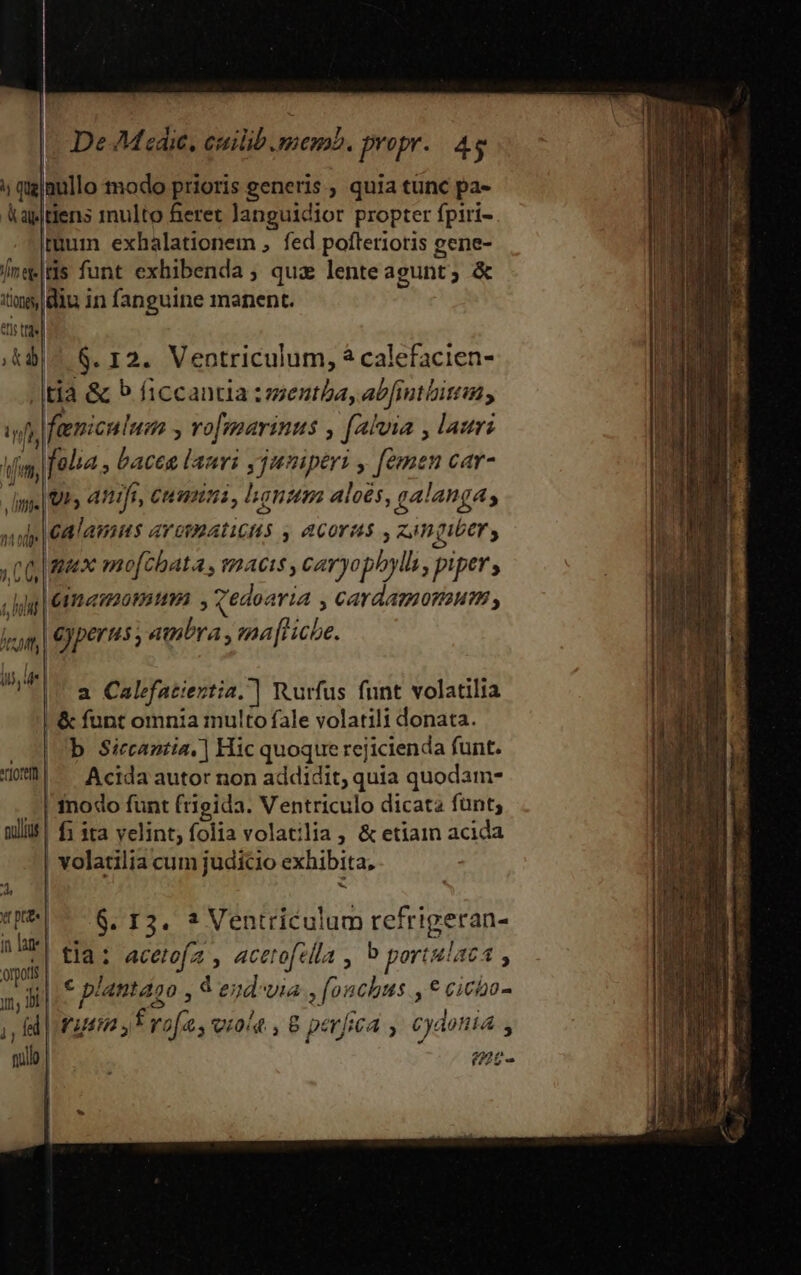 De Medic. cuilib. memb. propr. 45
nullo modo prioris generis, quia tunc pa-
tiens multo fieret languidior propter ſpiri-
tuum exhalationem, ſed poſterioris gene-
ris ſunt exhibenda, quæ lente agunt, &
diu in ſanguine manent.
§. 12. Ventriculum, a calefacien-
tia & b ſiccantia: mentha, abſinthium,
fœniculum, roſmarinus, ſalvia, lauri
folia, baccæ lauri, juniperi, ſemen car-
vi, aniſi, cumini, lignum aloës, galanga,
calamus aromaticus, acorus, zingiber,
nux moſchata, macis, caryophylli, piper,
cinamomum, zedoaria, cardamomum,
cyperus, ambra, maſtiche.
a Calefatientia.] Rurſus ſunt volatilia
& ſunt omnia multo ſale volatili donata.
b Siccantia.] Hic quoque rejicienda ſunt.
Acida autor non addidit, quia quodam-
modo ſunt frigida. Ventriculo dicata ſunt,
ſi ita velint, ſolia volatilia, & etiam acida
volatilia cum judicio exhibita.
§. 13. a Ventriculum refrigeran-
tia: acetoſa, acetoſella, b portulaca,
c plantago, d endivia, ſonchus, e cicho-
rium, f roſæ, viola, g perſica, cydonia,